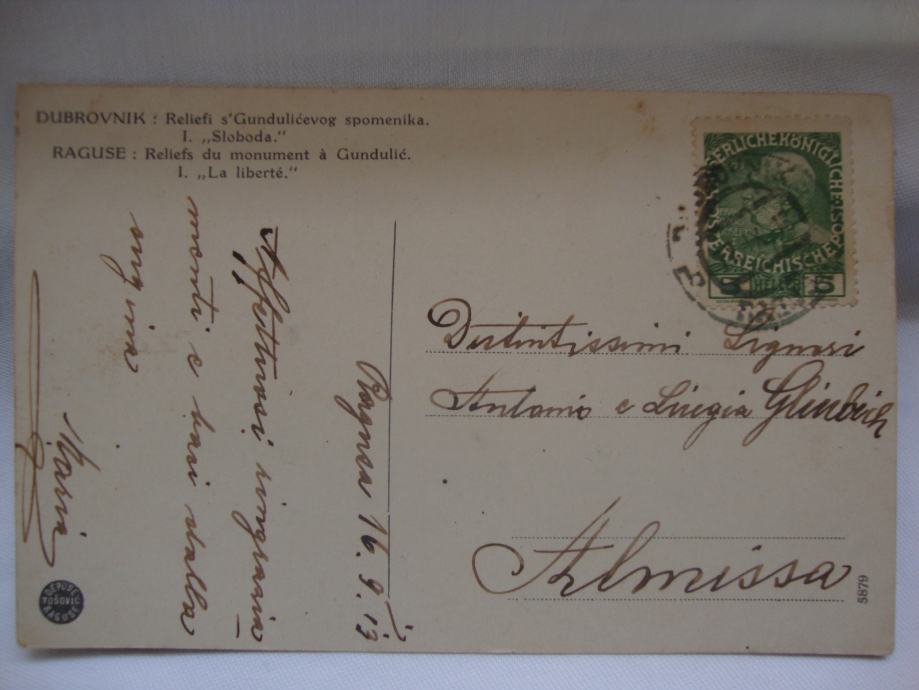 DUBROVNIK : Reliefi s'Gundulićevog spomenika.
I. „Sloboda."
RAGUSE : Reliefs du monument à Gundulić.
I. „La liberté."
KAISERLICHE KÖNIGLICHE
ÖSTERREICHISCHE POST
5 HELLER 5
Distintissimi Signori
Antonio e Luigia
Almissa
Ragusa 16.9.13
Affettuosi ringrazia
menti e baci dalla
Maria
DEPOSE
TOŠOVIĆ
RAGUSE
5879